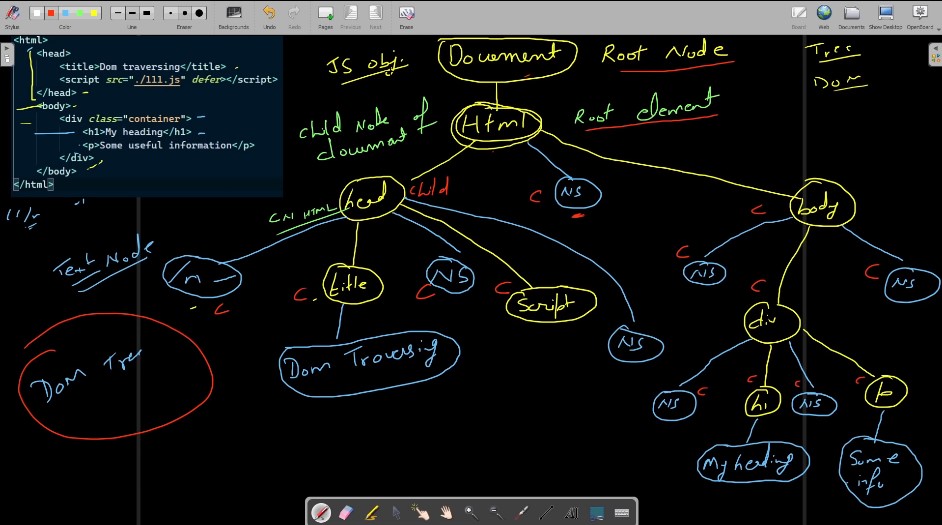 Stylus
Color
Line
Eraser
Backgrounds
Undo
Redo
Pages
Previous
Next
Erase
Board
Web
Documents
Show Desktop
OpenBoard
<html>
<head>
<title>Dom traversing</title>
<script src="./111.js" defer></script>
</head>
<body>
<div class="container">
<h1>My heading</h1>
<p>Some useful information</p>
</div>
</body>
</html>
JS obj:
Document
Root Node
Tree
Dom
Child Node of
document
Html
Root element
head
child
C
NS
C
body
C.N HTML
Text Node
\n
C
C.
title
C
NS
C
Script
C
NS
C
NS
C
div
NS
Dom Traversing
Dom Tree
NS
C
C
h1
C
NS
C
p
My heading
Some
info